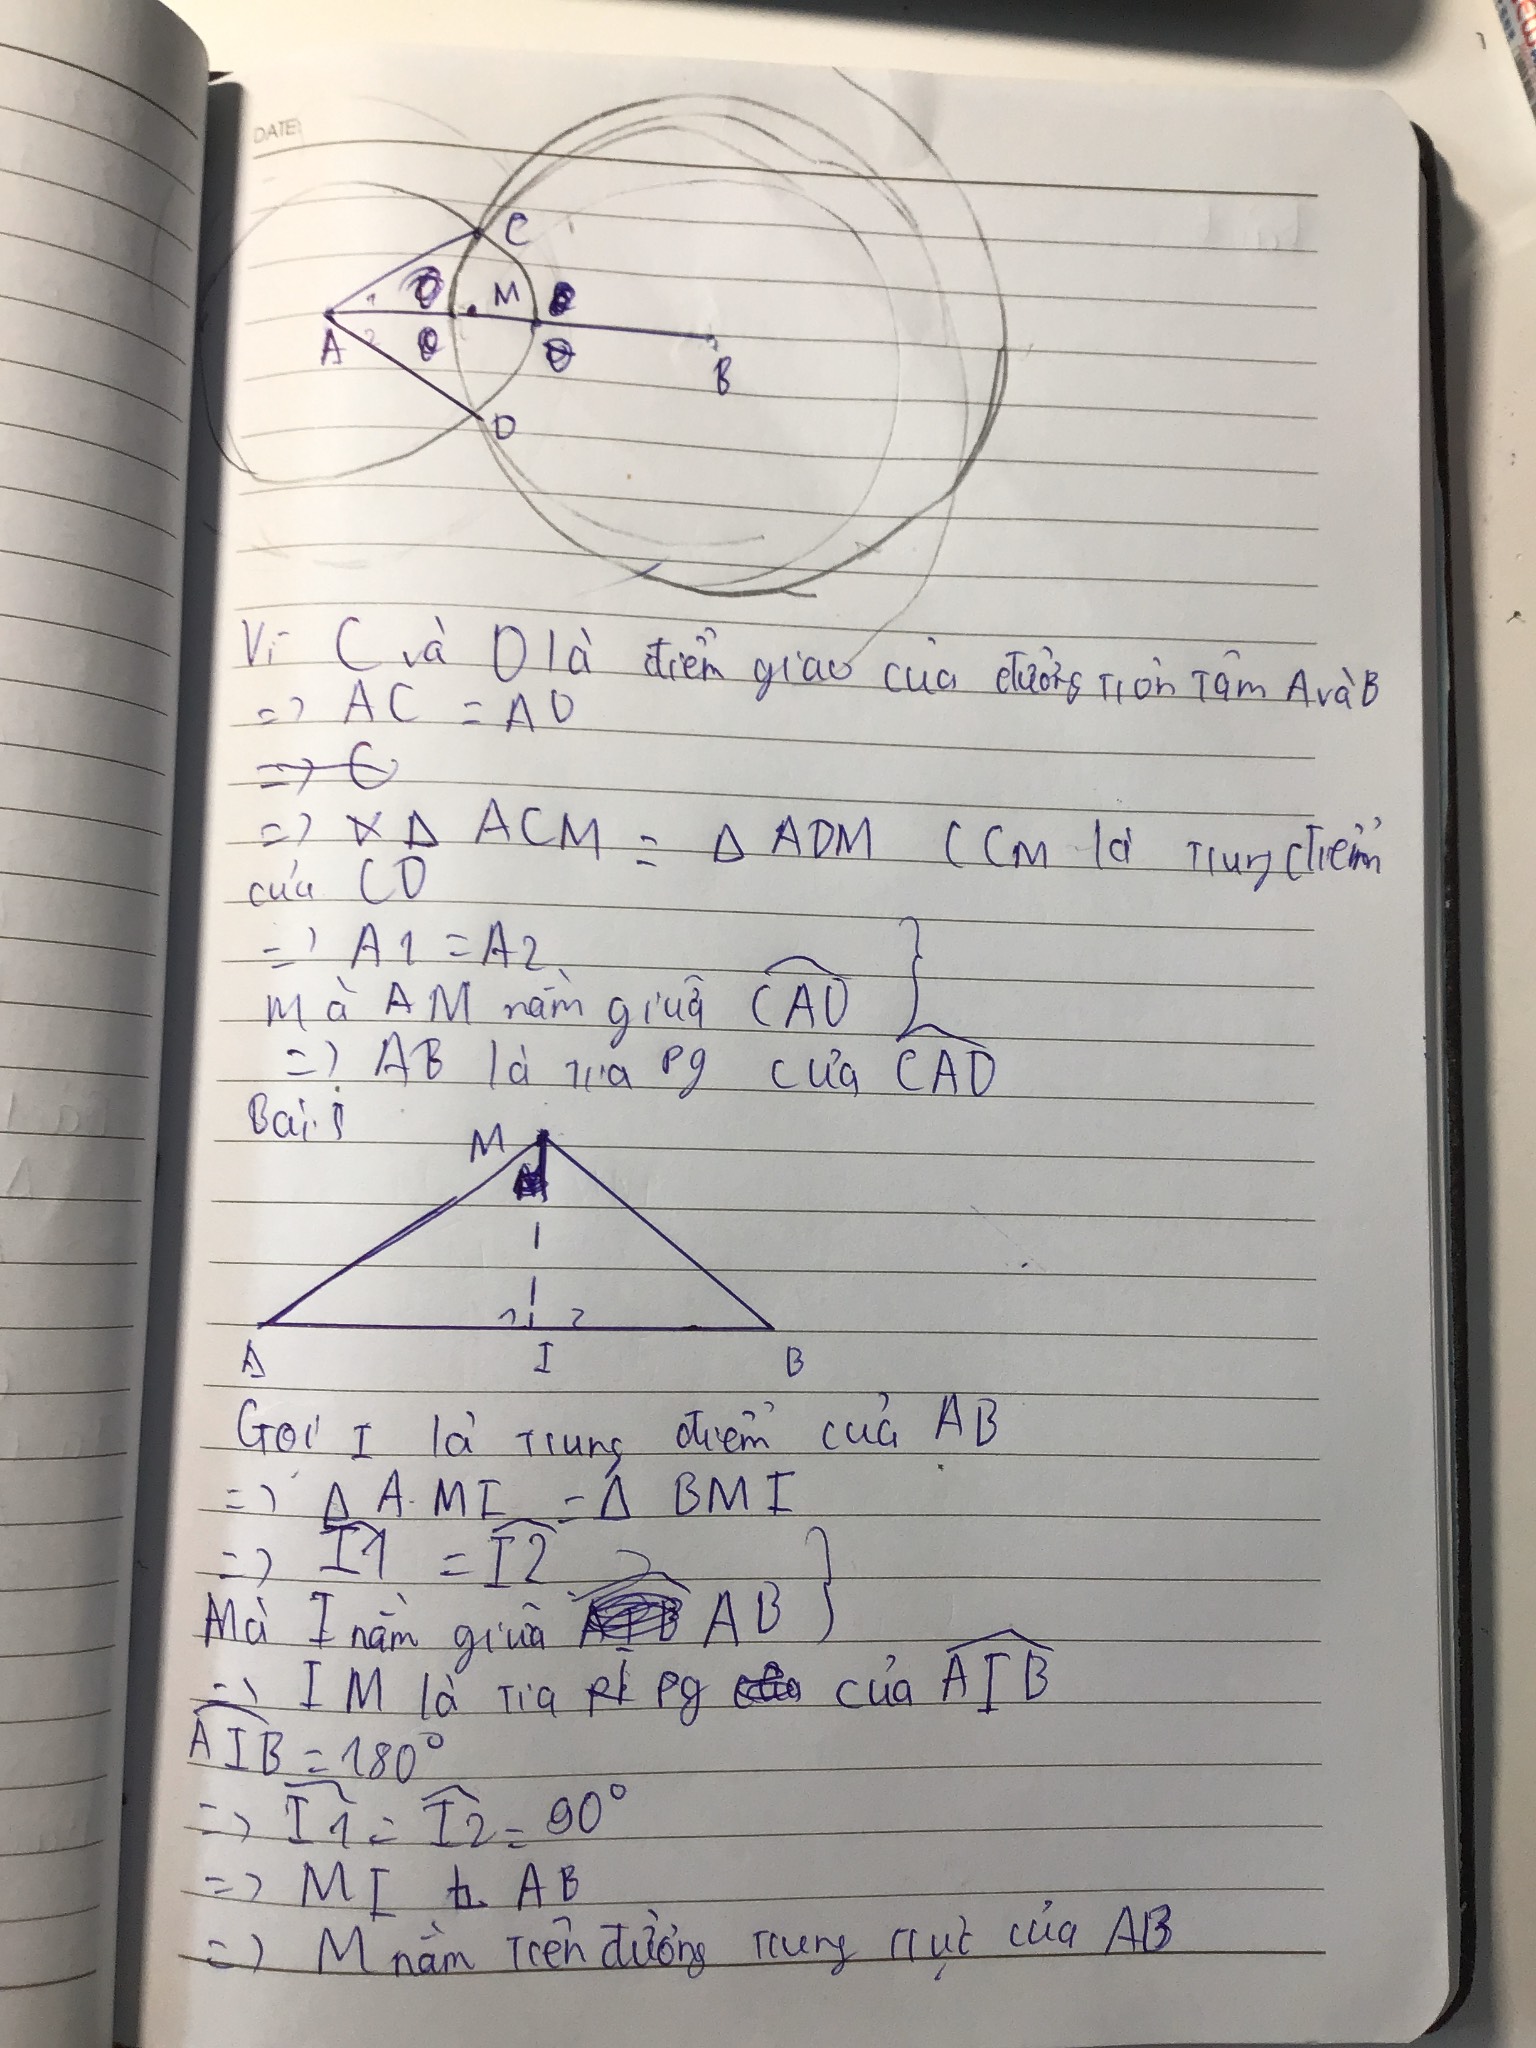 DATE:
C
1 M
A 2 B
D
Vì C và D là điểm giao của đường tròn tâm A và B
=> AC = AD
=> Δ ACM = Δ ADM (CM là trung điểm
của CD
=> A1 = A2
Mà AM nằm giữa CAD
=> AB là tia pg của CAD
Bài
M
1 2
A I B
Gọi I là trung điểm của AB
=> Δ AMI = Δ BMI
=> I1 = I2
Mà I nằm giữa AB
=> IM là tia pg của AIB
AIB = 180°
=> I1 = I2 = 90°
=> MI ⊥ AB
=> M nằm trên đường trung trực của AB